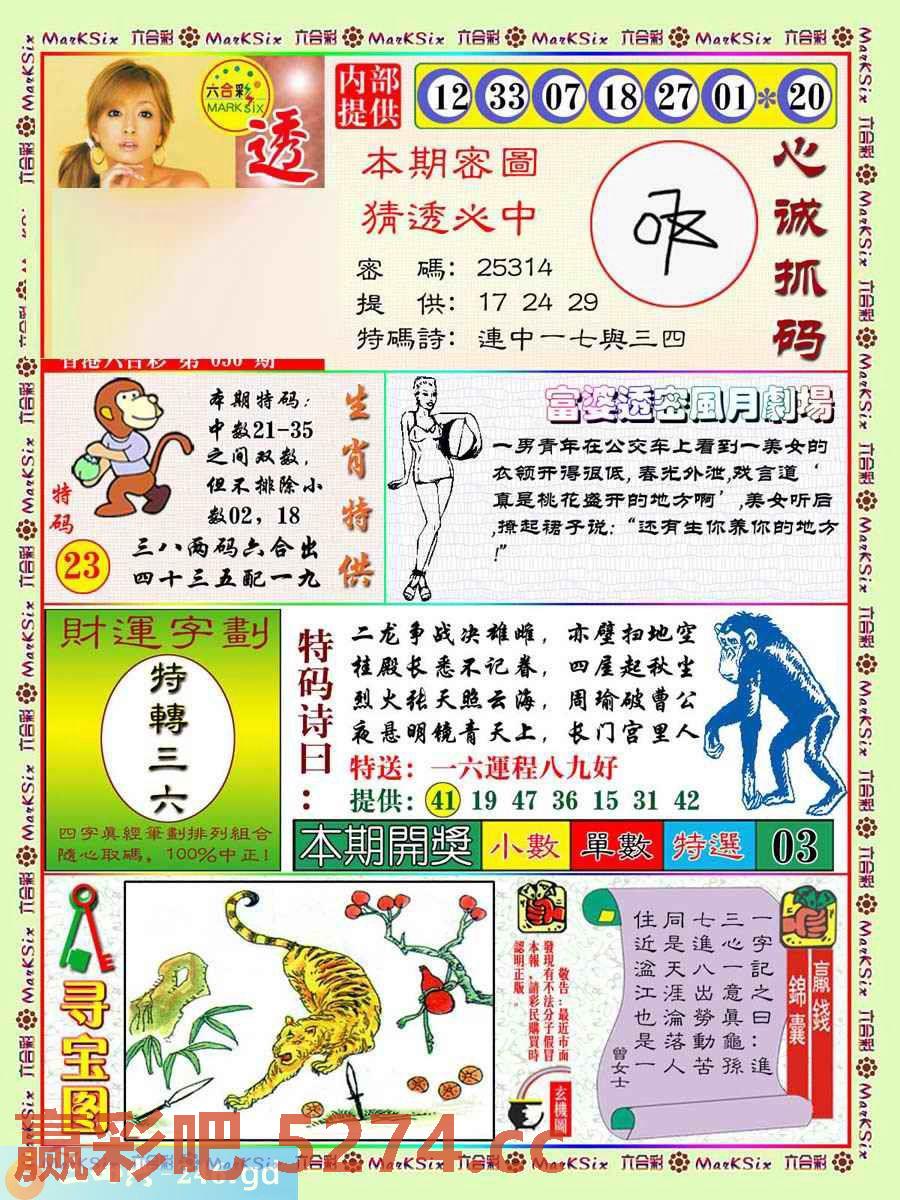 六合彩
MARKSix
透
内部
提供
12 33 07 18 27 01 * 20
本期密圖
猜透必中
密 碼：25314
提 供：17 24 29
特碼詩：連中一七與三四
心诚抓码
生肖特供
特码
23
本期特码：
中数21-35
之间双数，
但不排除小
数02，18
三八两码六合出
四十三五配一九
富婆透密風月劇場
一男青年在公交车上看到一美女的
衣领开得很低，春光外泄，戏言道‘
真是桃花盛开的地方啊’，美女听后
，撩起裙子说：“还有生你养你的地方
!”
財運字劃
特轉三六
四字真經筆劃排列組合
隨心取碼，100%中正!
特码诗曰：
二龙争战决雄雌，赤壁扫地空
桂殿长悉不记春，四屋起秋尘
烈火张天照云海，周瑜破曹公
夜悬明镜青天上，长门宫里人
特送：一六運程八九好
提供：41 19 47 36 15 31 42
本期開獎 小數 單數 特選 03
寻宝图
敬告：最近市面
發現有不法分子假冒
本報，請彩民購買時
認明正版。
玄機圖
贏錢
錦囊
一字記之曰：進
三心一意真龜孫
七進八出勞動苦
同是天涯淪落人
住近湓江也是一
曾女士
赢彩吧 5274.cc
MarKSix 六合彩